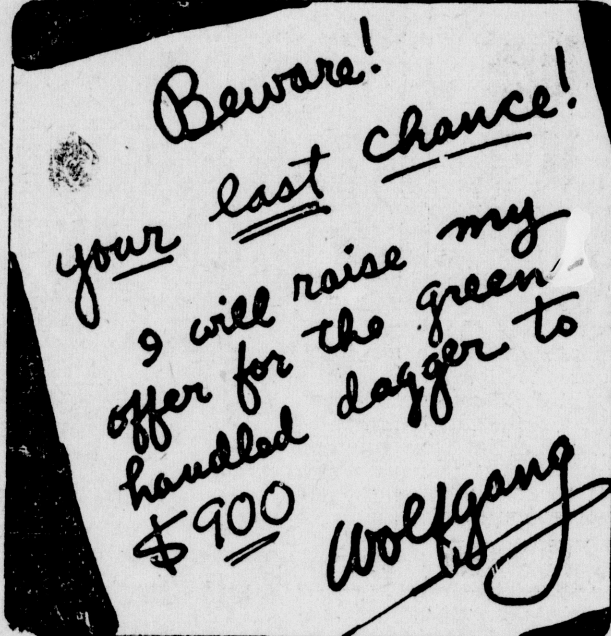 Beware!
your last chance!
I will raise my
offer for the green
handled dagger to
$900
Wolfgang